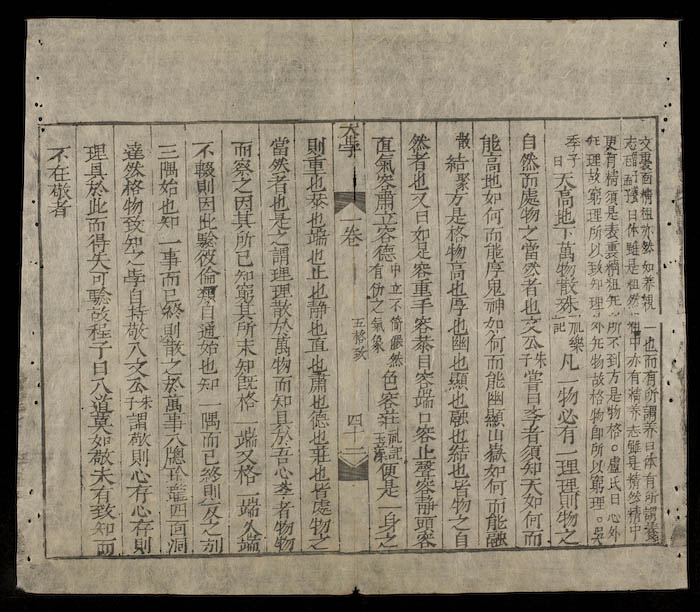 文裏面精粗亦然如養親一也而有所謂養口体有所謂養
口体雖是粗然粗中亦有精養志雖是精然精中
更有精須是表裏精粗无所不到方是物格。盧氏曰心外
无理故窮理所以致知理外无物故格物即所以窮理。吳
季子曰天高地下萬物散殊礼樂記凡一物必有一理理則物之
自然而處物之當然者也文公朱子嘗曰斈者須知天如何而
能高地如何而能厚鬼神如何而能幽顯山嶽如何而能融
散結聚方是格物高也厚也幽也顯也融也結也皆物之自
然者也又曰如足容重手容恭目容端口容止聲容静頭容
直氣容肅立容德中立不倚儼然有之氣象色容莊礼記玉藻便是一身之
大學 一卷 五格致 四十二
則重也恭也端也止也静也直也肅也德也莊也皆處物之
當然者也是之謂理理散於萬物而知具於吾心斈者物物
而察之因其所已知窮其所未知既格一端又格一端久端
不輟則因此驗彼倫類自通始也知一隅而已終則反之於
三隅始也知一事而已終則散之於萬事八牕玲瓏四面洞
達然格物致知之學自持敬入文公朱子謂敬則心存心存則
理具於此而得失可驗故程子曰入道莫如敬未有致知而
不在敬者